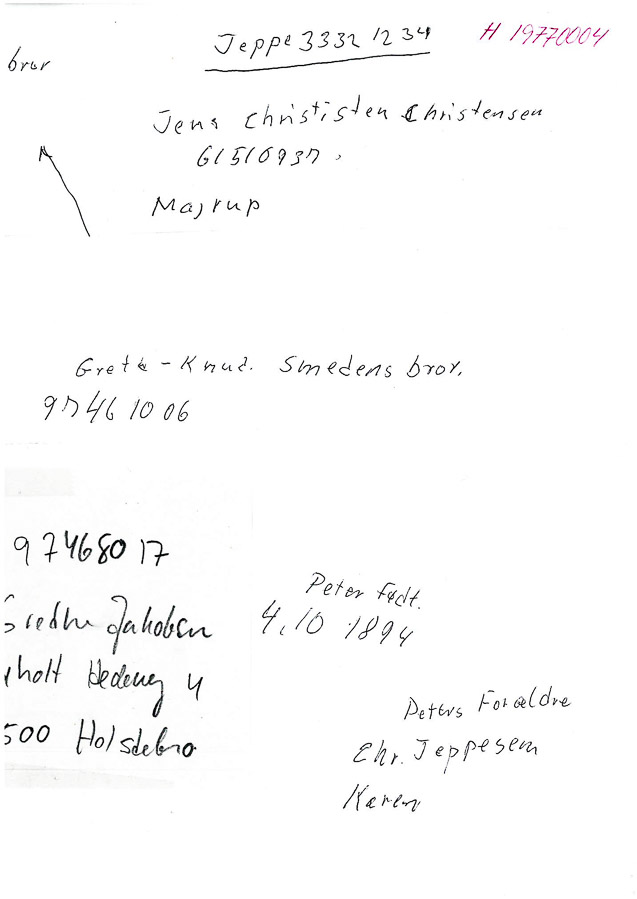 Jeppe 3332 12 34
H 19770004
bror
Jens Christisten Christensen
61510937.
Majrup
Greta - Knud. Smedens bror.
97461006
97468017
Jakobsen
holt Hedevej 4
500 Holstebro
Peter født.
4.10 1894
Peters Forældre
Chr. Jeppesen
Karen